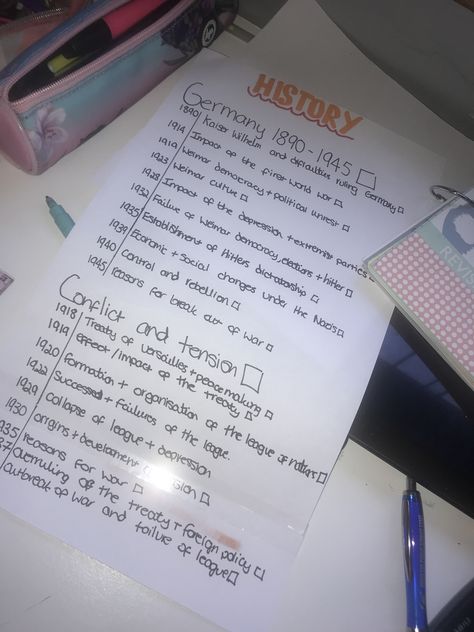 HISTORY
Germany 1890-1945 □
1890 Kaiser Wilhelm and difficulties ruling Germany □
1914 Impact of the first world war □
1919 Weimar democracy + political unrest □
1923 Weimar culture □
1928 Impact of the depression + extremist parties □
1932 Failure of Weimar democracy, elections + hitler □
1935 Establishment of Hitlers dictatorship □
1939 Economic + social changes under the Nazi's □
1940 control and rebellion □
1945 reasons for break out of war □
Conflict and tension □
1918 Treaty of versailles + peacemaking □
1919 effect/impact of the treaty □
1920 formation + organisation of the league of nations □
1922 Success + failures of the league.
1929 collapse of league + depression
1930 origins + development
1935 reasons for war □
overruling of the treaty + foreign policy □
outbreak of war and failure of league □
REV